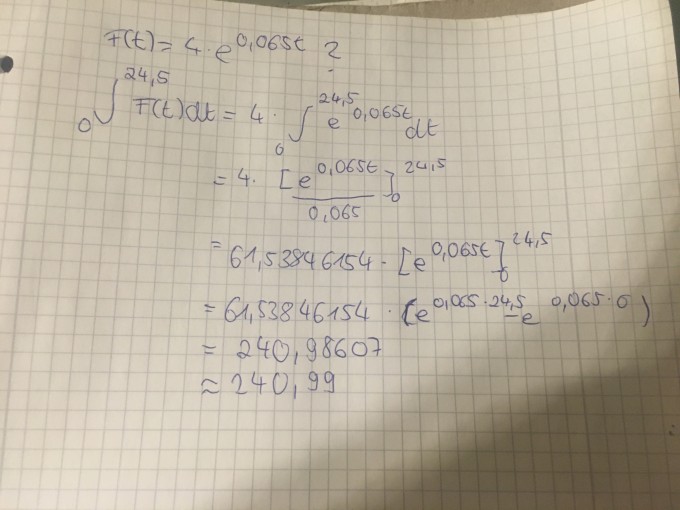 F(t) = 4 · e^0,065t ?
0∫24,5 F(t)dt = 4 · 0∫24,5 e^0,065t dt
= 4 · [e^0,065t / 0,065]0^24,5
= 61,53846154 · [e^0,065t]0^24,5
= 61,53846154 · (e^0,065·24,5 − e^0,065·0)
= 240,98607
≈ 240,99